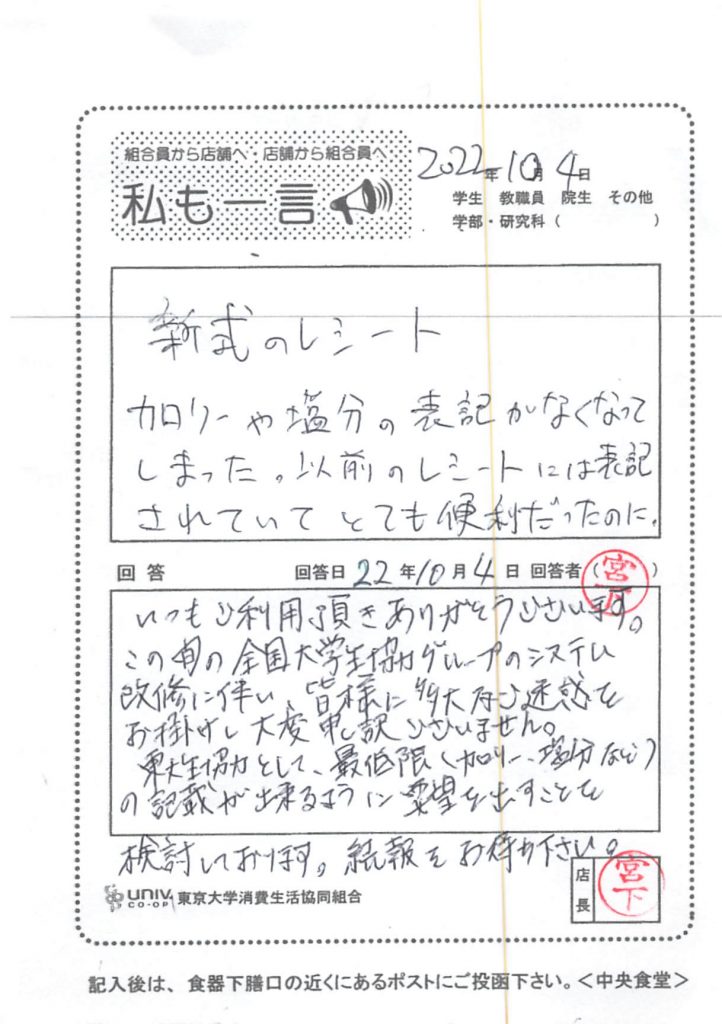 組合員から店舗へ・店舗から組合員へ
私も一言
2022年10月4日
学生 教職員 院生 その他
学部・研究科( )
新式のレシート
カロリーや塩分の表記がなくなって
しまった。以前のレシートには表記
されていてとても便利だったのに。
回答 回答日 22年10月4日 回答者(宮下)
いつもご利用頂きありがとうございます。
この度の全国大学生協グループのシステム
改修に伴い、皆様に多大なご迷惑を
お掛けし大変申し訳ございません。
東大生協として、最低限(カロリー、塩分など)
の記載が出来るように要望を出すことを
検討しております。続報をお待ち下さい。
店長 宮下
UNIV. CO-OP 東京大学消費生活協同組合
記入後は、食器下膳口の近くにあるポストにご投函下さい。<中央食堂>